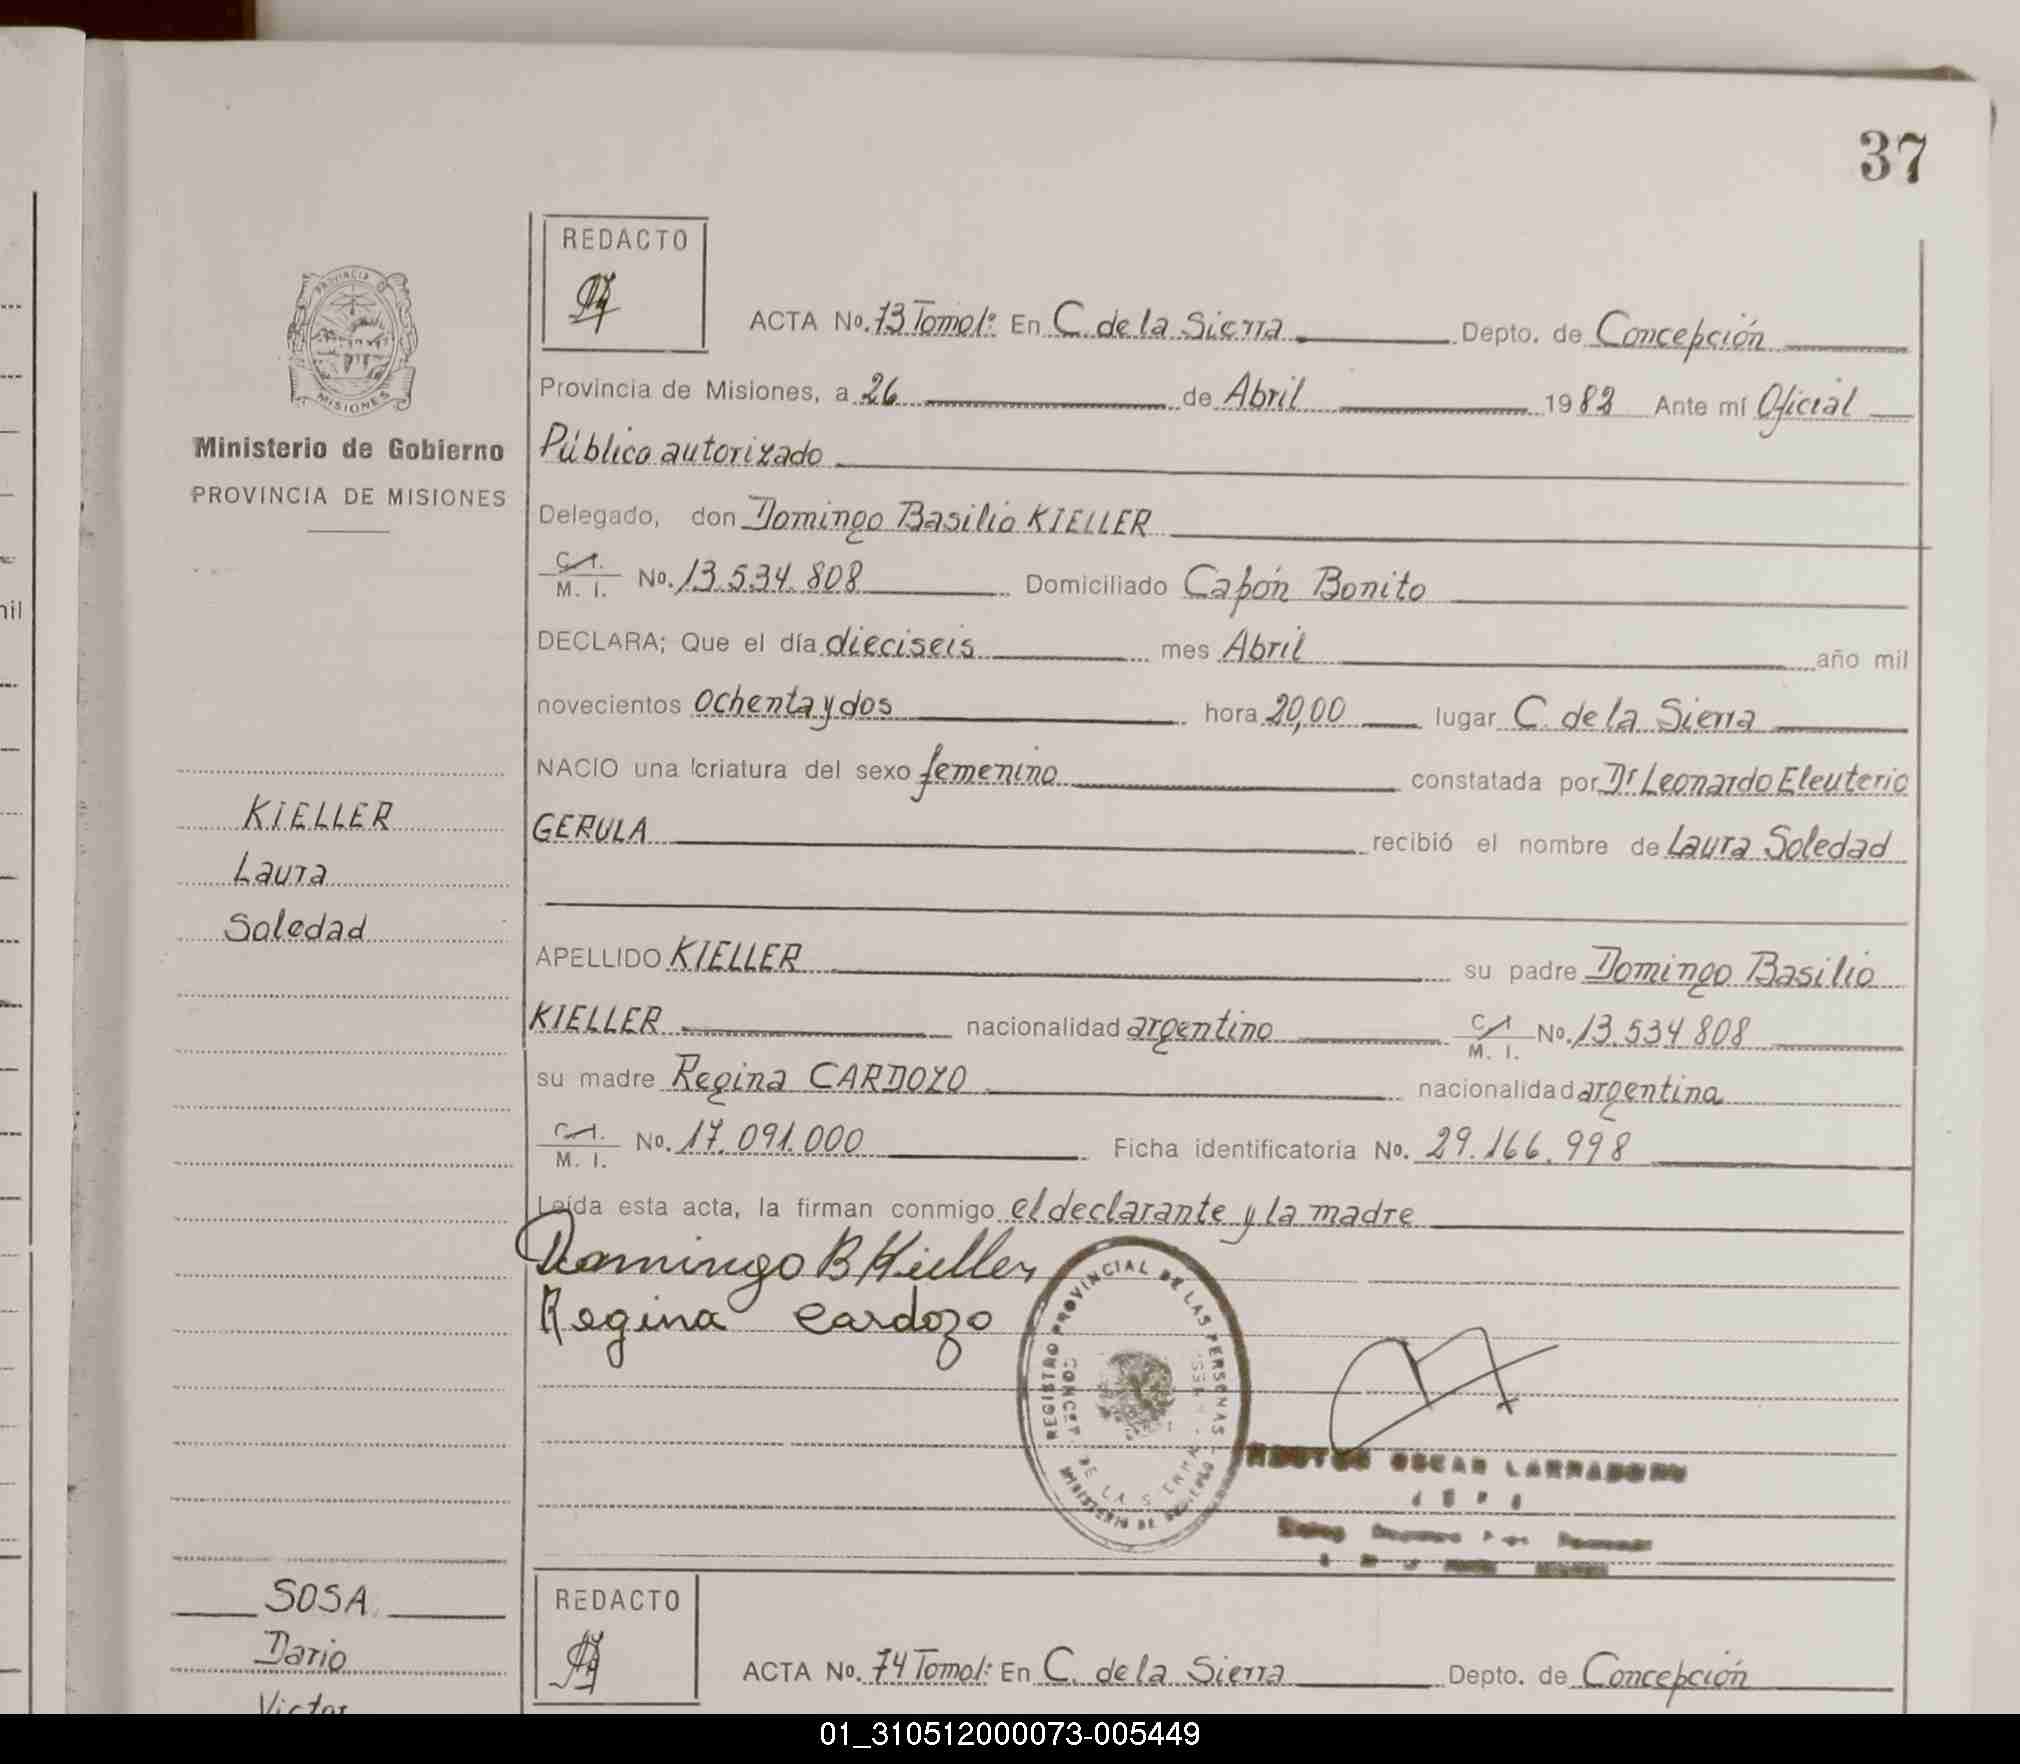 37
REDACTO
PROVINCIA DE
MISIONES
Ministerio de Gobierno
PROVINCIA DE MISIONES
ACTA No. 73 Tomo 1: En C. de la Sierra Depto. de Concepción
Provincia de Misiones, a 26 de Abril 1982 Ante mí Oficial
Público autorizado
Delegado, don Domingo Basilio KIELLER
C. I.
M. I. No. 13.534.808 Domiciliado Capón Bonito
DECLARA; Que el día dieciseis mes Abril año mil
novecientos ochenta y dos hora 20,00 lugar C. de la Sierra
NACIO una criatura del sexo femenino constatada por Dr Leonardo Eleuterio
GERULA recibió el nombre de Laura Soledad
KIELLER
Laura
Soledad
APELLIDO KIELLER su padre Domingo Basilio
KIELLER nacionalidad argentino C. I. M. I. No. 13.534.808
su madre Regina CARDOZO nacionalidad argentina
C. I.
M. I. No. 17.091.000 Ficha identificatoria No. 29.166.998
Leída esta acta, la firman conmigo el declarante y la madre
Domingo B Kieller
Regina Cardozo
REGISTRO PROVINCIAL DE LAS PERSONAS
CONCEP. DE LA SIERRA
MINISTERIO DE GOBIERNO
OSCAR
SOSA
Dario
Victor
REDACTO
ACTA No. 74 Tomo 1: En C. de la Sierra Depto. de Concepción
01_310512000073-005449